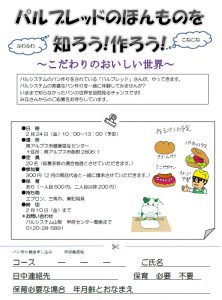 パルブレッドのほんものを
知ろう!作ろう!
ふわふわ
こねこね
～こだわりのおいしい世界～
パルシステムのパン作りをされている「パルブレッド」さんが、やってきます。
パルシステムの実直なパン作りを一緒に体験してみませんか?
いままで知らなかったパンの世界を垣間見るチャンスです!!
みなさんからのご応募をお待ちしています。
●日 時
2月24日(金)10:00～13:00(予定)
●場 所
南アルプス市健康福祉センター
*住所:南アルプス市飯野2806-1
●定 員
20名(応募多数の場合抽選とさせていただきます)
●参加費
300円(2月の商品代金と一緒に請求させていただきます)
●保 育
あり(一人目500円、二人目以降200円)
●持ち物
エプロン、三角巾、筆記用具
●締 切
2月10日(金)まで
*お問い合わせ
パルシステム山梨 甲府センター委員会まで
0120-28-5891
パン作り教室申し込み 甲府委員宛
コース ー ー ー ご氏名
日中連絡先 保育 必要 不要
保育必要な場合 年月齢とおなまえ